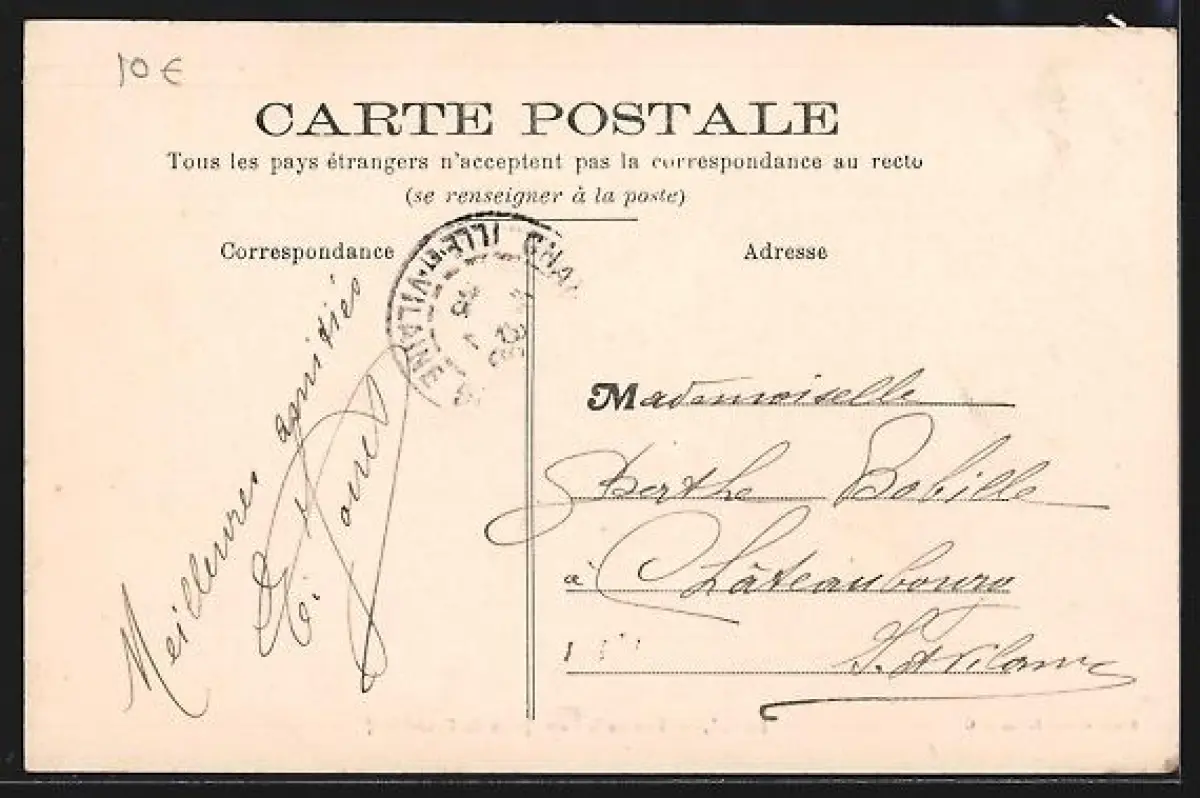 10 €
CARTE POSTALE
Tous les pays étrangers n'acceptent pas la correspondance au recto
(se renseigner à la poste)
Correspondance
Adresse
ILLE-ET-VILAINE
Meilleures amitiés
Mademoiselle
Berthe Bobille
à Châteaubourg
I. et Vilaine